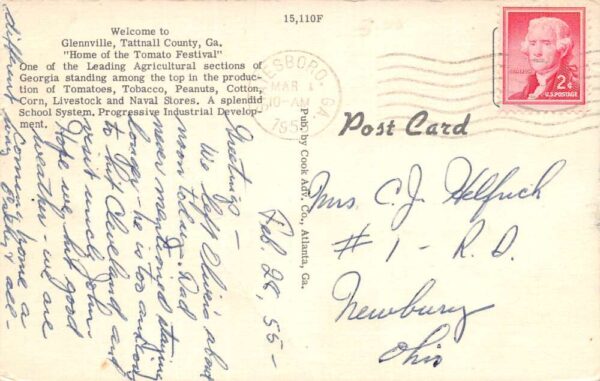 15,110F
Welcome to
Glennville, Tattnall County, Ga.
"Home of the Tomato Festival"
One of the Leading Agricultural sections of
Georgia standing among the top in the produc-
tion of Tomatoes, Tobacco, Peanuts, Cotton,
Corn, Livestock and Naval Stores. A splendid
School System. Progressive Industrial Develop-
ment.
ESBORO, GA.
MAR 1
10 AM
1955
2¢
U.S. POSTAGE
Post Card
Pub. by Cook Adv. Co., Atlanta, Ga.
Feb. 28, 55-
Greetings -
We left about
noon today. Dad
never mentioned staying
longer - he is too anxious
to hit Cleveland and
visit uncle John.
Hope we hit good
weather - we are
coming home a
different way
Mrs. C. J. Helfrich
#1 - R.D.
Newbury
Ohio